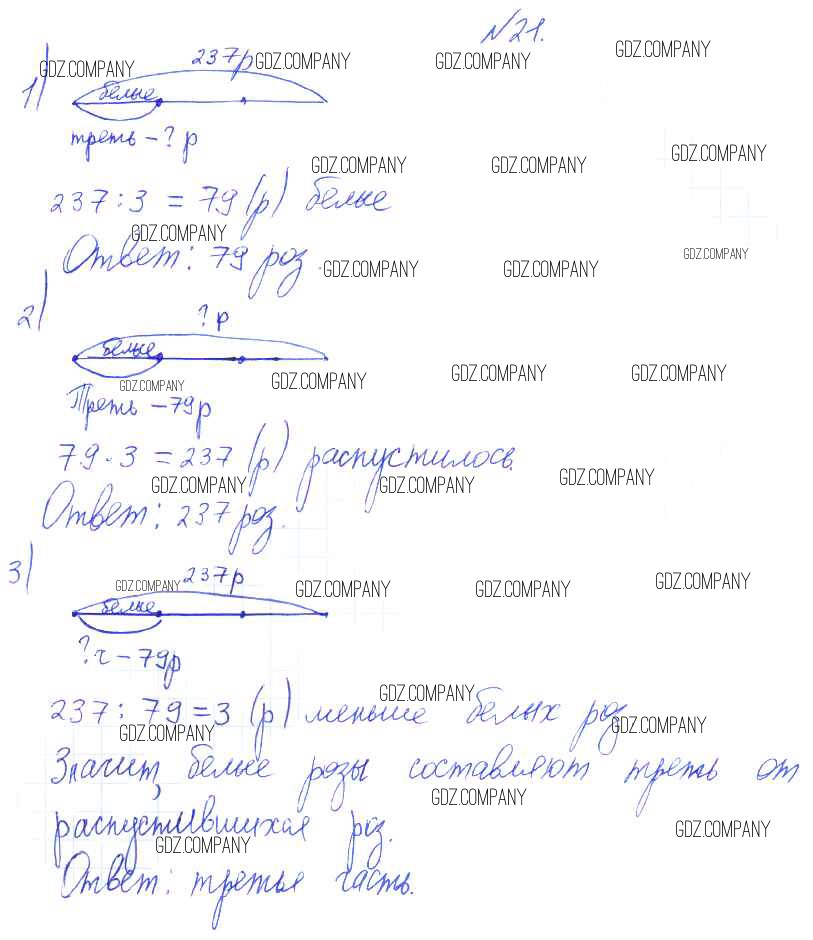 №21.
GDZ.COMPANY GDZ.COMPANY GDZ.COMPANY GDZ.COMPANY
1) 237р
белые
треть – ? р
GDZ.COMPANY GDZ.COMPANY GDZ.COMPANY
237 : 3 = 79 (р) белые
GDZ.COMPANY
Ответ: 79 роз.
GDZ.COMPANY GDZ.COMPANY GDZ.COMPANY
2) ? р
белые
GDZ.COMPANY GDZ.COMPANY GDZ.COMPANY GDZ.COMPANY
Треть – 79р
79 · 3 = 237 (р) распустилось.
GDZ.COMPANY GDZ.COMPANY GDZ.COMPANY
Ответ: 237 роз.
3) 237р
GDZ.COMPANY GDZ.COMPANY GDZ.COMPANY GDZ.COMPANY
белые
? ч – 79р
GDZ.COMPANY
237 : 79 = 3 (р) меньше белых роз
GDZ.COMPANY GDZ.COMPANY
Значит, белые розы составляют треть от
GDZ.COMPANY
распустившихся роз.
GDZ.COMPANY GDZ.COMPANY
Ответ: третья часть.